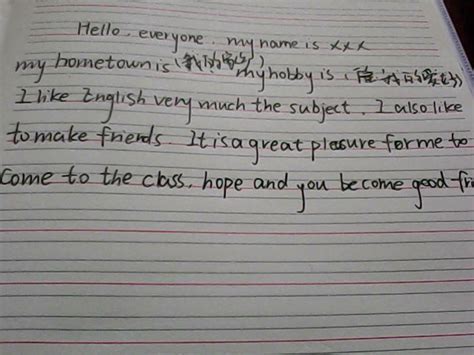 Hello. everyone. my name is xxx
my hometown is (我的家乡) my hobby is (我的爱好)
I like English very much the subject. I also like
to make friends. It is a great plesure for me to
come to the class, hope and you become good frie